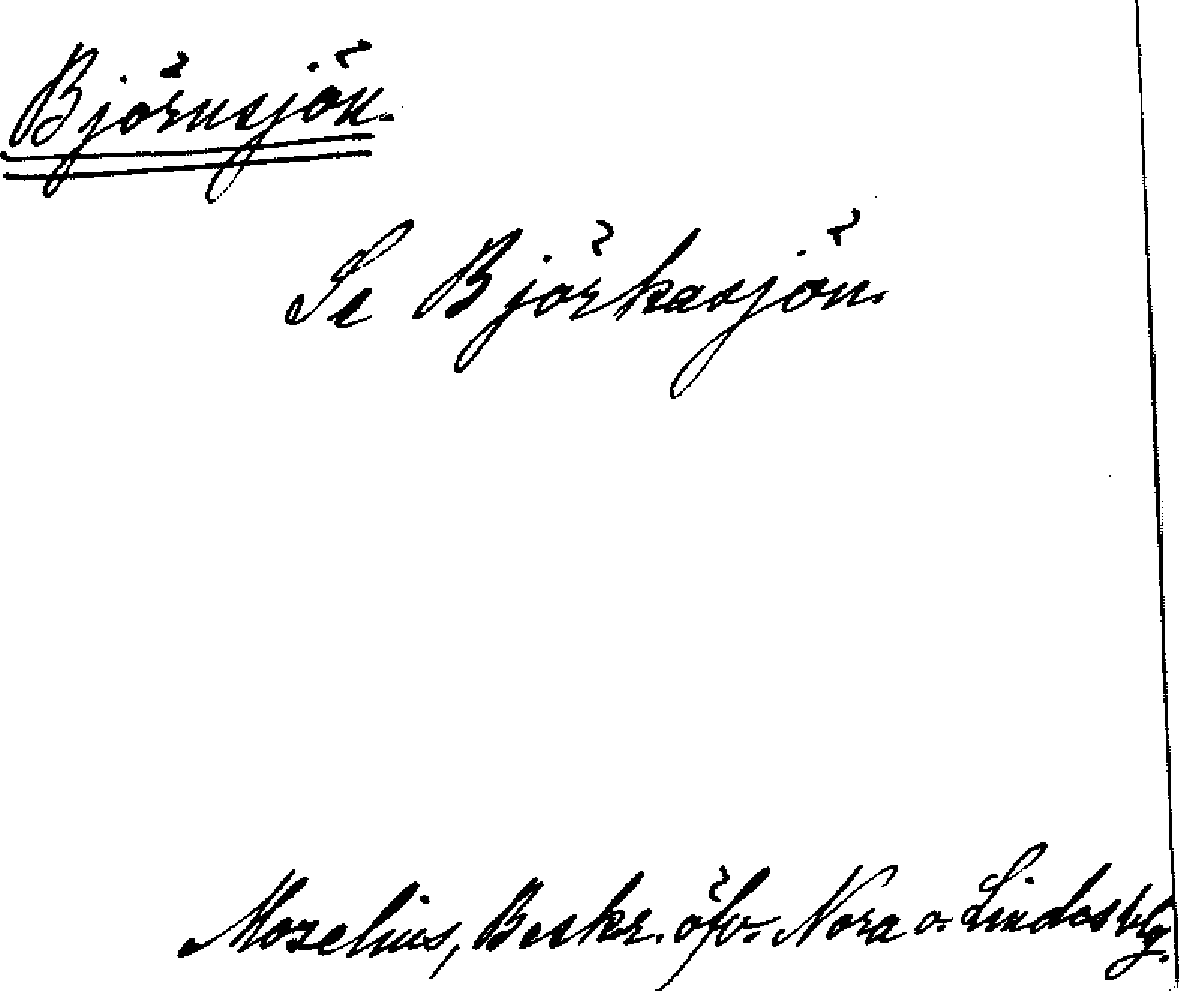 Björnsjön.
Se Björkasjön.
Mozelius, Beskr. öfv. Nora o. Lindesblg.